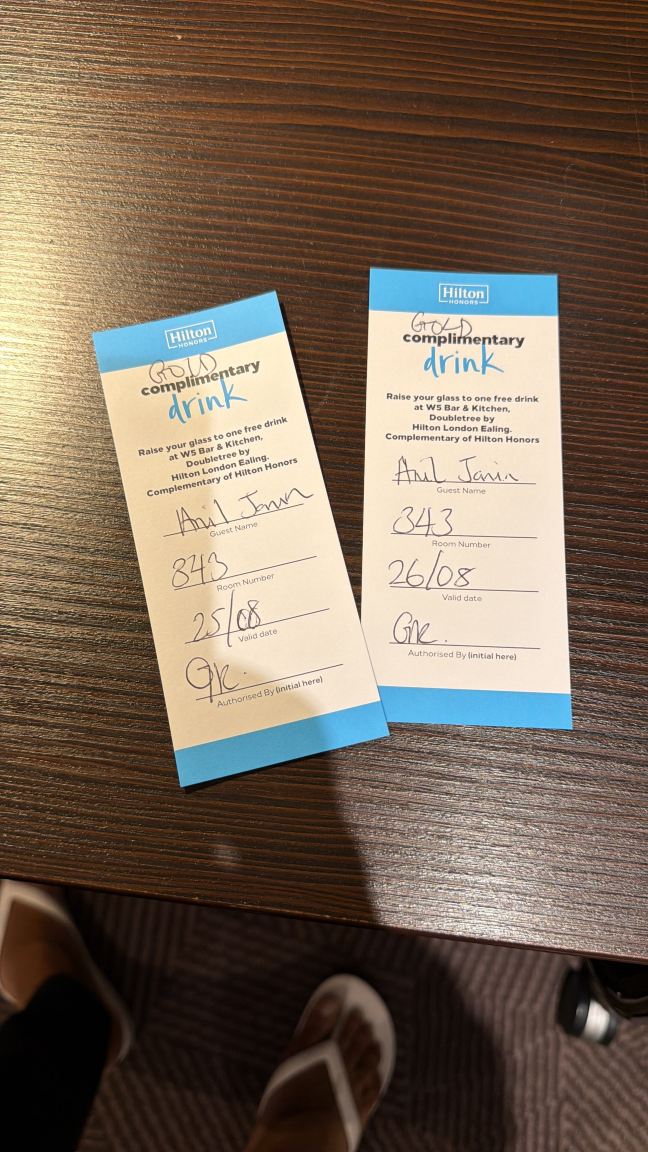 Hilton
HONORS
GOLD
complimentary
drink
Raise your glass to one free drink
at W5 Bar & Kitchen,
Doubletree by
Hilton London Ealing.
Complementary of Hilton Honors
Anil
Guest Name
343
Room Number
25/08
Valid date
Authorised By (initial here)
Hilton
HONORS
GOLD
complimentary
drink
Raise your glass to one free drink
at W5 Bar & Kitchen,
Doubletree by
Hilton London Ealing.
Complementary of Hilton Honors
Anil
Guest Name
343
Room Number
26/08
Valid date
Authorised By (initial here)